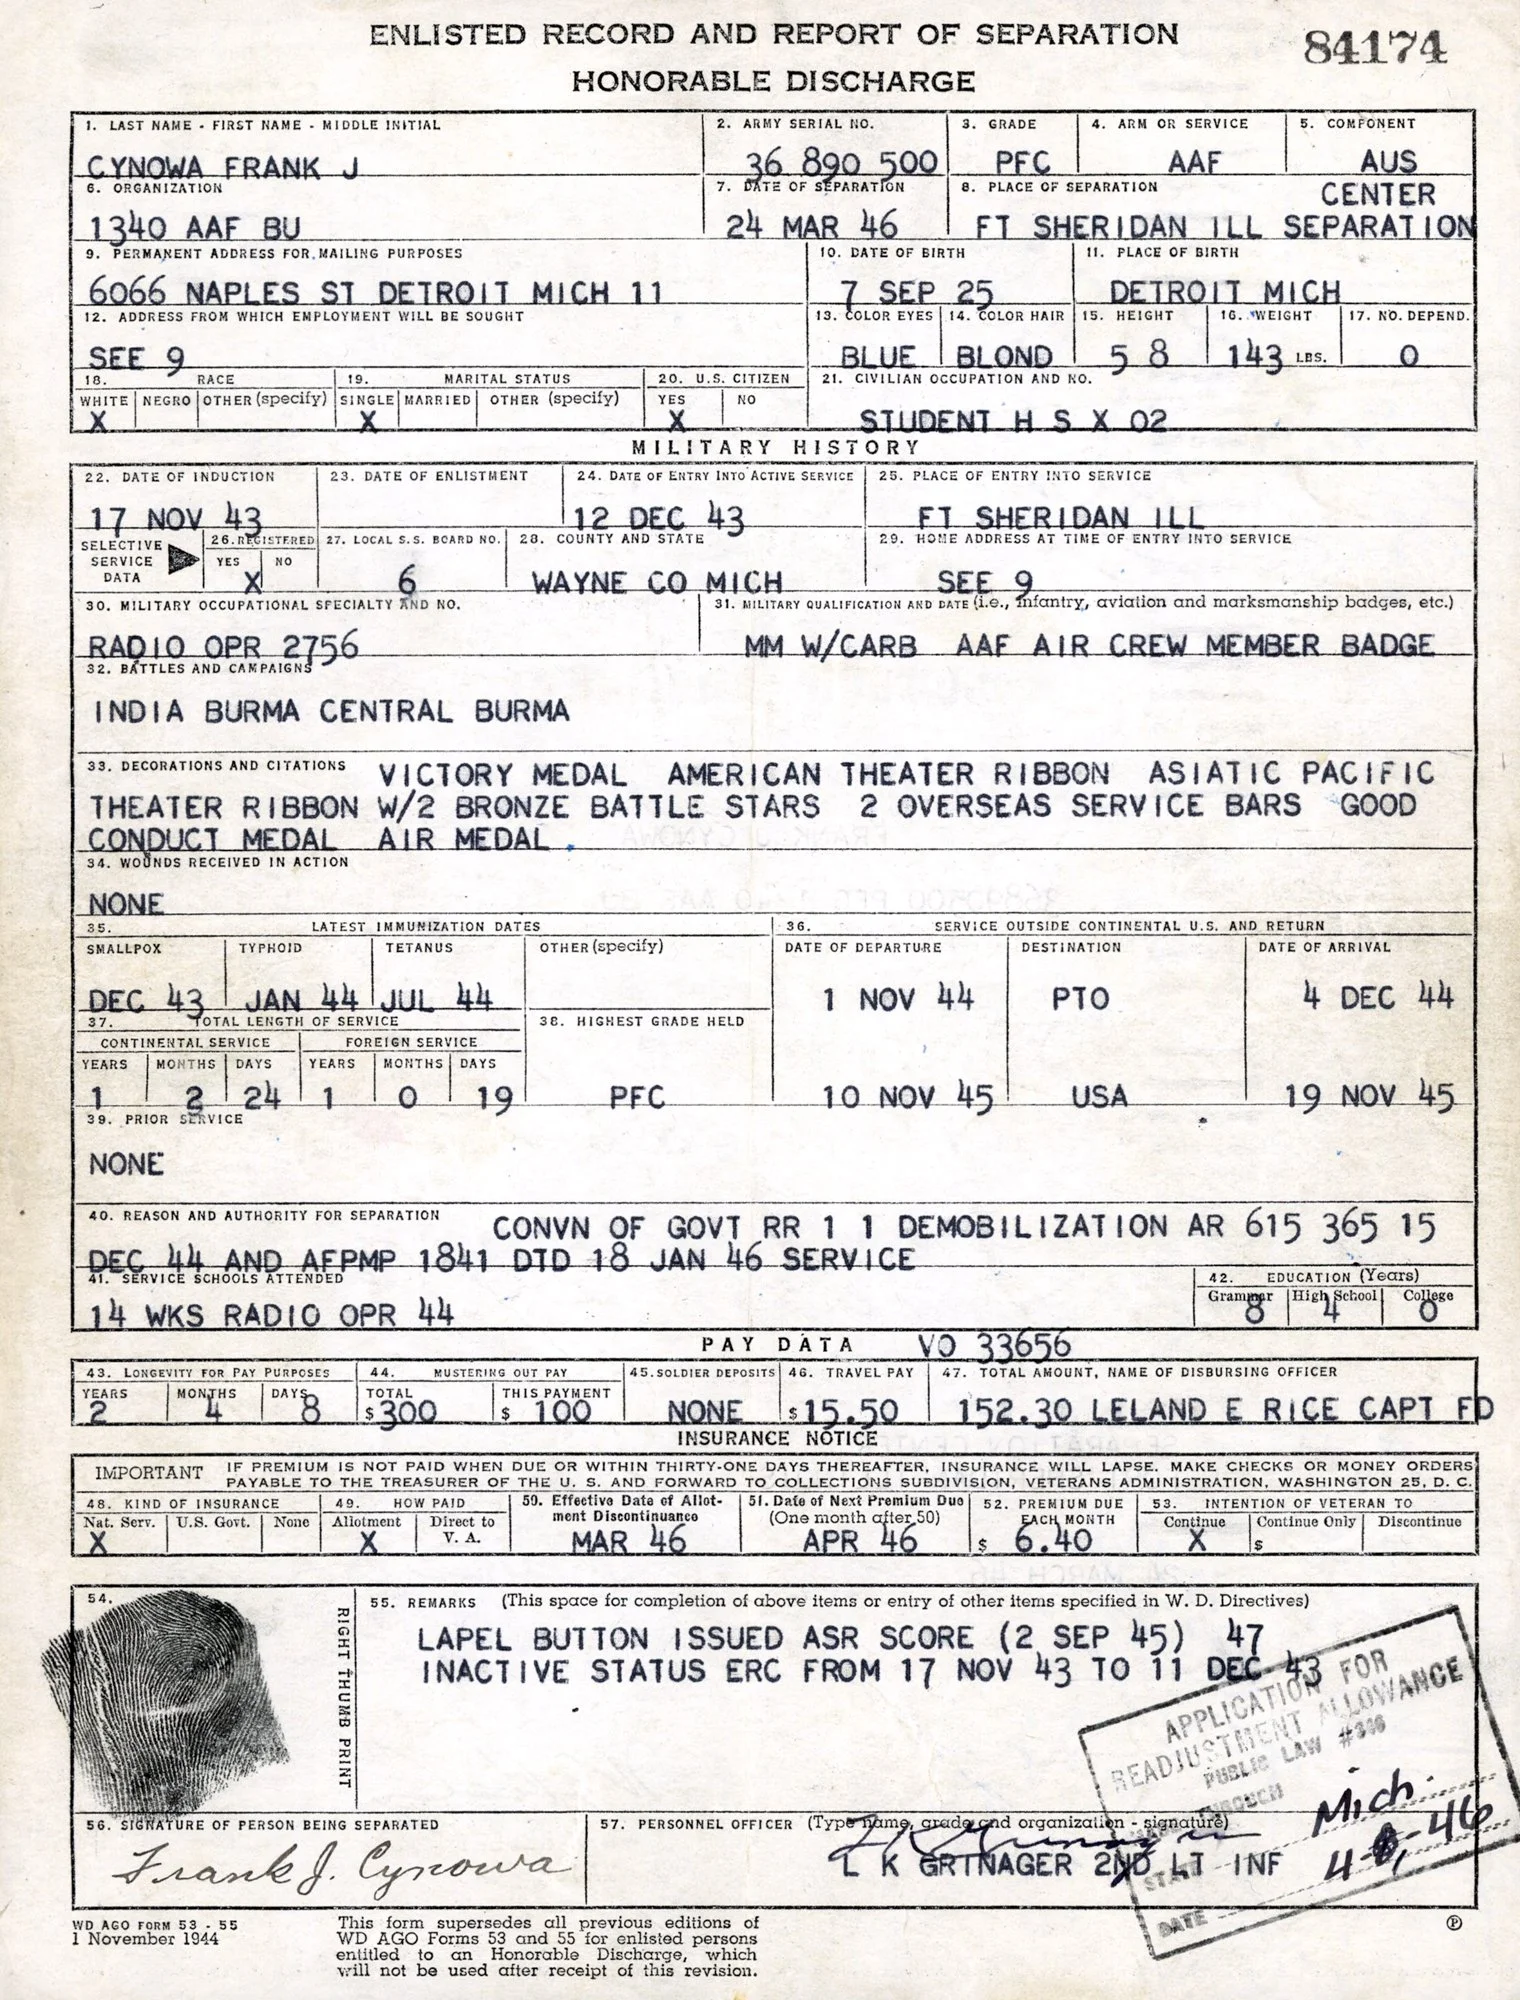 ENLISTED RECORD AND REPORT OF SEPARATION
84174
HONORABLE DISCHARGE
1. LAST NAME - FIRST NAME - MIDDLE INITIAL
CYNOWA FRANK J
2. ARMY SERIAL NO.
36 890 500
3. GRADE
PFC
4. ARM OR SERVICE
AAF
5. COMPONENT
AUS
6. ORGANIZATION
1340 AAF BU
7. DATE OF SEPARATION
24 MAR 46
8. PLACE OF SEPARATION
CENTER
FT SHERIDAN ILL SEPARATION
9. PERMANENT ADDRESS FOR MAILING PURPOSES
6066 NAPLES ST DETROIT MICH 11
10. DATE OF BIRTH
7 SEP 25
11. PLACE OF BIRTH
DETROIT MICH
12. ADDRESS FROM WHICH EMPLOYMENT WILL BE SOUGHT
SEE 9
13. COLOR EYES
BLUE
14. COLOR HAIR
BLOND
15. HEIGHT
5 8
16. WEIGHT
143 LBS.
17. NO. DEPEND.
0
18. RACE
WHITE NEGRO OTHER (specify)
X
19. MARITAL STATUS
SINGLE MARRIED OTHER (specify)
X
20. U.S. CITIZEN
YES NO
X
21. CIVILIAN OCCUPATION AND NO.
STUDENT H S X 02
MILITARY HISTORY
22. DATE OF INDUCTION
17 NOV 43
23. DATE OF ENLISTMENT
24. DATE OF ENTRY INTO ACTIVE SERVICE
12 DEC 43
25. PLACE OF ENTRY INTO SERVICE
FT SHERIDAN ILL
SELECTIVE
SERVICE
DATA
26. REGISTERED
YES NO
X
27. LOCAL S.S. BOARD NO.
6
28. COUNTY AND STATE
WAYNE CO MICH
29. HOME ADDRESS AT TIME OF ENTRY INTO SERVICE
SEE 9
30. MILITARY OCCUPATIONAL SPECIALTY AND NO.
RADIO OPR 2756
31. MILITARY QUALIFICATION AND DATE (i.e., infantry, aviation and marksmanship badges, etc.)
MM W/CARB AAF AIR CREW MEMBER BADGE
32. BATTLES AND CAMPAIGNS
INDIA BURMA CENTRAL BURMA
33. DECORATIONS AND CITATIONS VICTORY MEDAL AMERICAN THEATER RIBBON ASIATIC PACIFIC
THEATER RIBBON W/2 BRONZE BATTLE STARS 2 OVERSEAS SERVICE BARS GOOD
CONDUCT MEDAL AIR MEDAL
34. WOUNDS RECEIVED IN ACTION
NONE
35. LATEST IMMUNIZATION DATES
SMALLPOX TYPHOID TETANUS OTHER (specify)
DEC 43 JAN 44 JUL 44
36. SERVICE OUTSIDE CONTINENTAL U.S. AND RETURN
DATE OF DEPARTURE DESTINATION DATE OF ARRIVAL
1 NOV 44 PTO 4 DEC 44
10 NOV 45 USA 19 NOV 45
37. TOTAL LENGTH OF SERVICE
CONTINENTAL SERVICE FOREIGN SERVICE
YEARS MONTHS DAYS YEARS MONTHS DAYS
1 2 24 1 0 19
38. HIGHEST GRADE HELD
PFC
39. PRIOR SERVICE
NONE
40. REASON AND AUTHORITY FOR SEPARATION CONVN OF GOVT RR 1 1 DEMOBILIZATION AR 615 365 15
DEC 44 AND AFPMP 1841 DTD 18 JAN 46 SERVICE
41. SERVICE SCHOOLS ATTENDED
14 WKS RADIO OPR 44
42. EDUCATION (Years)
Grammar High School College
8 4 0
PAY DATA VO 33656
43. LONGEVITY FOR PAY PURPOSES
YEARS MONTHS DAYS
2 4 8
44. MUSTERING OUT PAY
TOTAL THIS PAYMENT
$300 $ 100
45. SOLDIER DEPOSITS
NONE
46. TRAVEL PAY
$15.50
47. TOTAL AMOUNT, NAME OF DISBURSING OFFICER
152.30 LELAND E RICE CAPT FD
INSURANCE NOTICE
IMPORTANT IF PREMIUM IS NOT PAID WHEN DUE OR WITHIN THIRTY-ONE DAYS THEREAFTER, INSURANCE WILL LAPSE. MAKE CHECKS OR MONEY ORDERS
PAYABLE TO THE TREASURER OF THE U. S. AND FORWARD TO COLLECTIONS SUBDIVISION, VETERANS ADMINISTRATION, WASHINGTON 25, D. C.
48. KIND OF INSURANCE
Nat. Serv. U.S. Govt. None
X
49. HOW PAID
Allotment Direct to
V. A.
X
50. Effective Date of Allot-
ment Discontinuance
MAR 46
51. Date of Next Premium Due
(One month after 50)
APR 46
52. PREMIUM DUE
EACH MONTH
$ 6.40
53. INTENTION OF VETERAN TO
Continue Continue Only Discontinue
X $
54.
RIGHT THUMB PRINT
55. REMARKS (This space for completion of above items or entry of other items specified in W. D. Directives)
LAPEL BUTTON ISSUED ASR SCORE (2 SEP 45) 47
INACTIVE STATUS ERC FROM 17 NOV 43 TO 11 DEC 43
APPLICATION FOR
READJUSTMENT ALLOWANCE
PUBLIC LAW #346
THROUGH
STATE Mich.
DATE 4-8-46
56. SIGNATURE OF PERSON BEING SEPARATED
Frank J. Cynowa
57. PERSONNEL OFFICER (Type name, grade and organization - signature)
L K GRINAGER 2ND LT INF
WD AGO FORM 53 - 55
1 November 1944
This form supersedes all previous editions of
WD AGO Forms 53 and 55 for enlisted persons
entitled to an Honorable Discharge, which
will not be used after receipt of this revision.